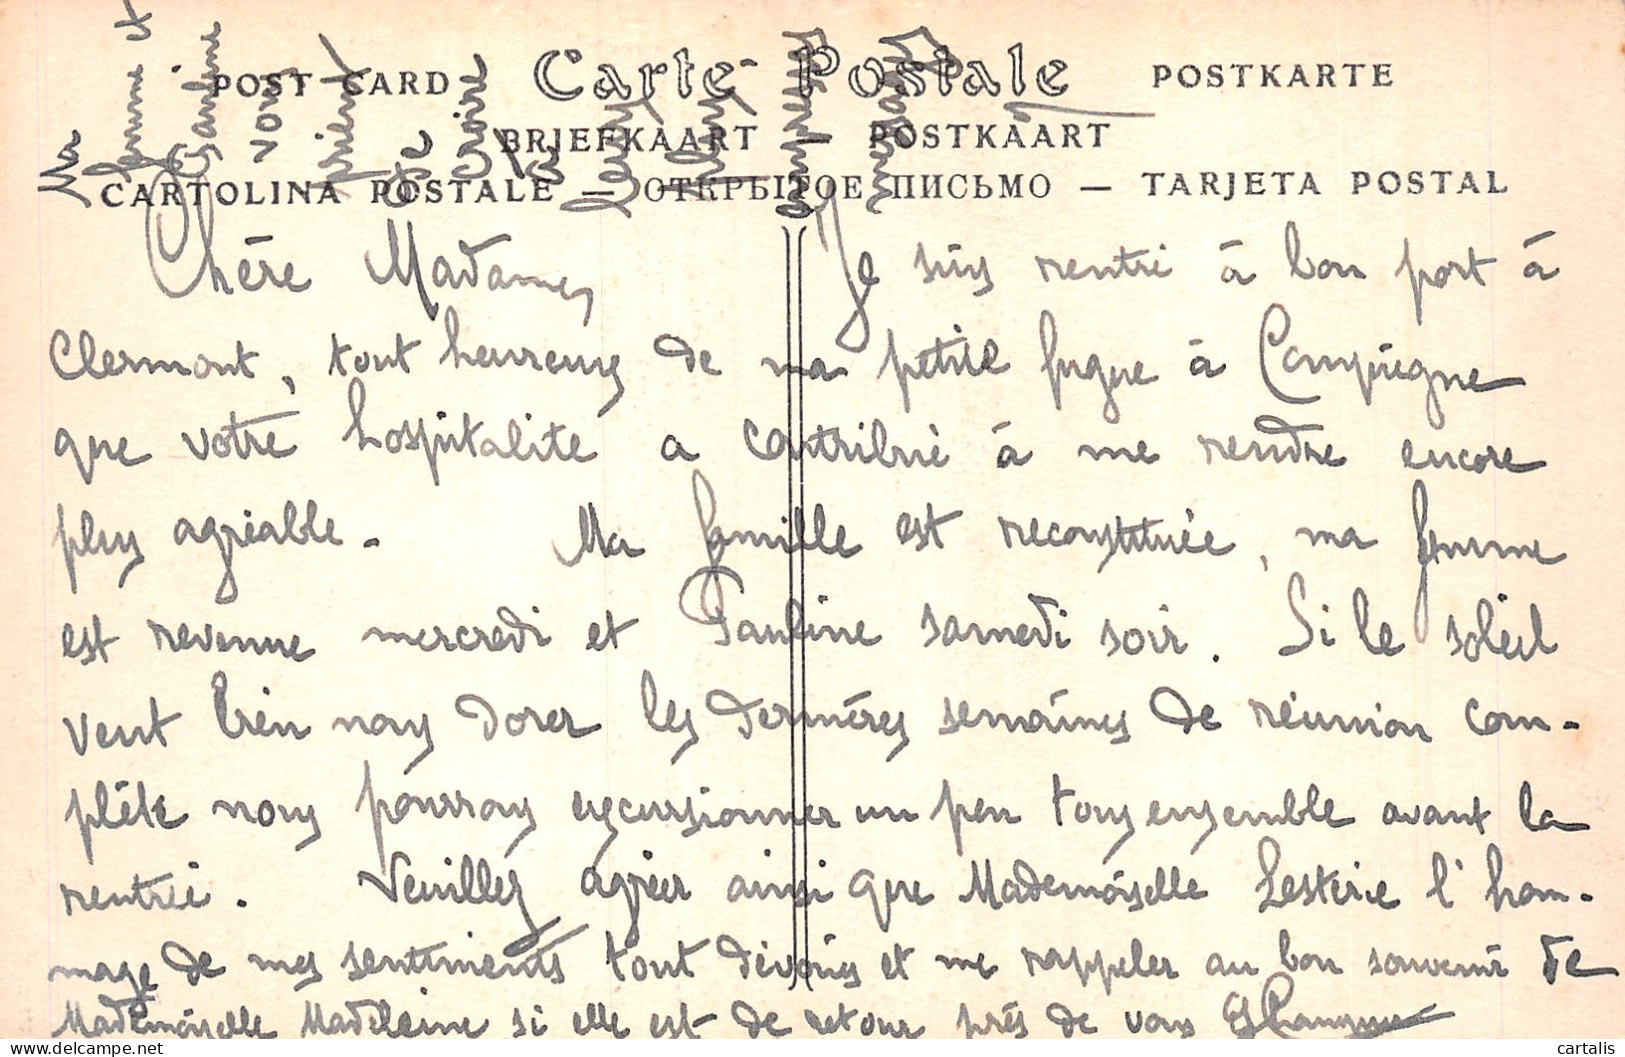 POST CARD Carte Postale POSTKARTE
BRIEFKAART — POSTKAART
CARTOLINA POSTALE — ОТКРЫТОЕ ПИСЬМО — TARJETA POSTAL
Ma femme et Pauline vous prient de croire
Chère Madame, Je suis rentré à bon port à
Clermont, tout heureux de ma petite fugue à Compiègne
que votre hospitalité a contribué à me rendre encore
plus agréable. Ma famille est reconstituée, ma femme
est revenue mercredi et Pauline samedi soir. Si le soleil
veut bien nous dorer les dernières semaines de réunion com-
plète nous pourrons excursionner un peu tous ensemble avant la
rentrée. Veuillez agréer ainsi que Mademoiselle l'hom-
mage de mes sentiments tout dévoués et me rappeler au bon souvenir de
Mademoiselle Madeleine si elle est de retour près de vous
cartalis